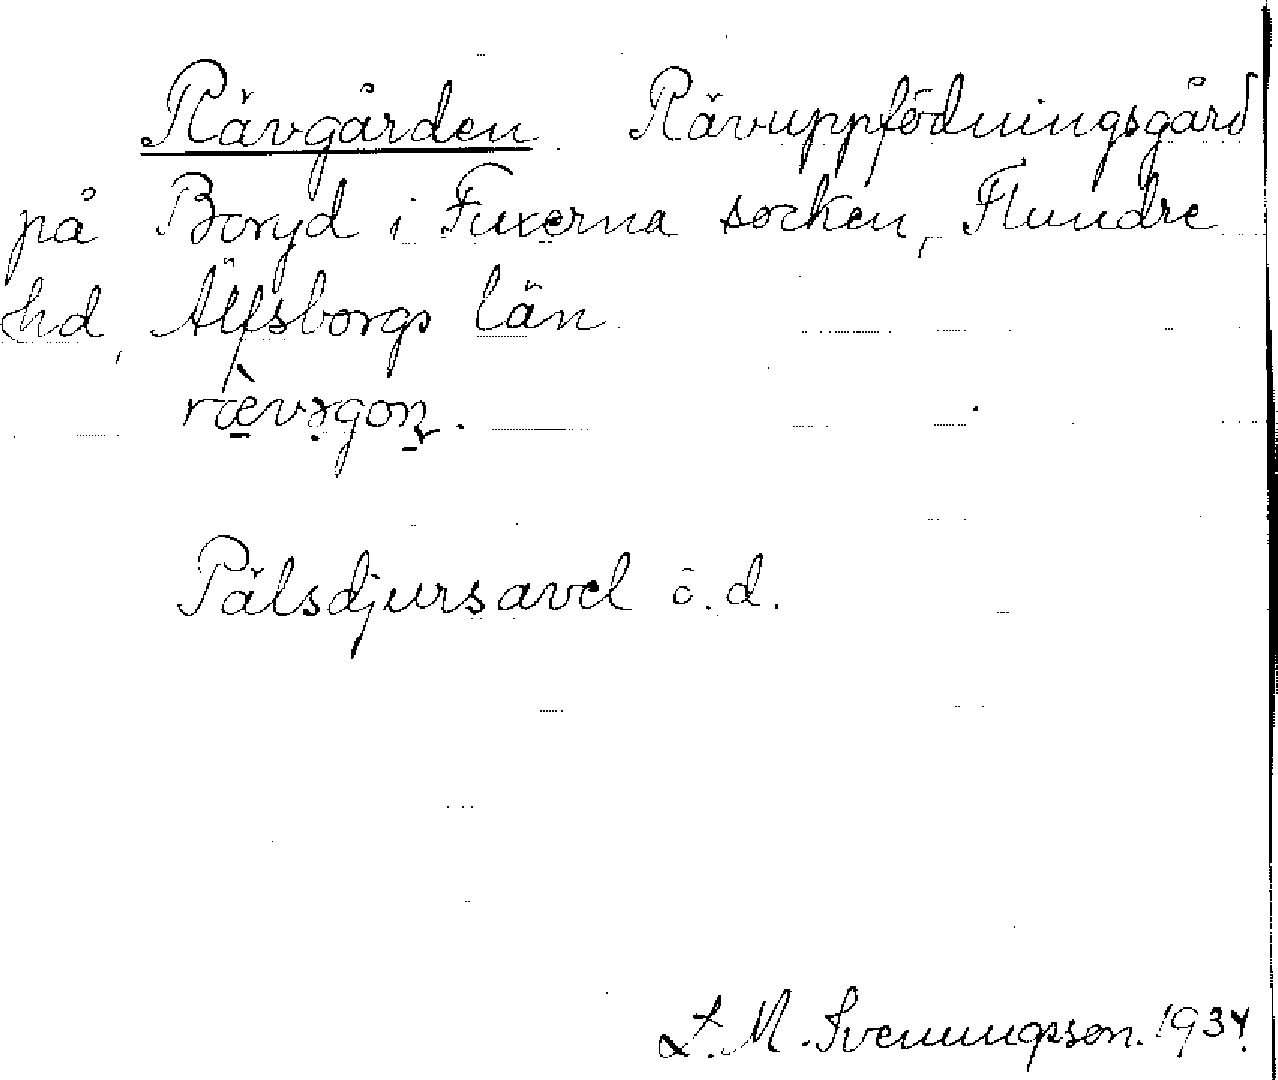 Rävgården Rävuppfödningsgård
på Boryd i Fuxerna socken, Flundre
hd, Älfsborgs län
rævəgoɳ.
Pälsdjursavel ö.d.
L. M. Svenungsson. 1934.